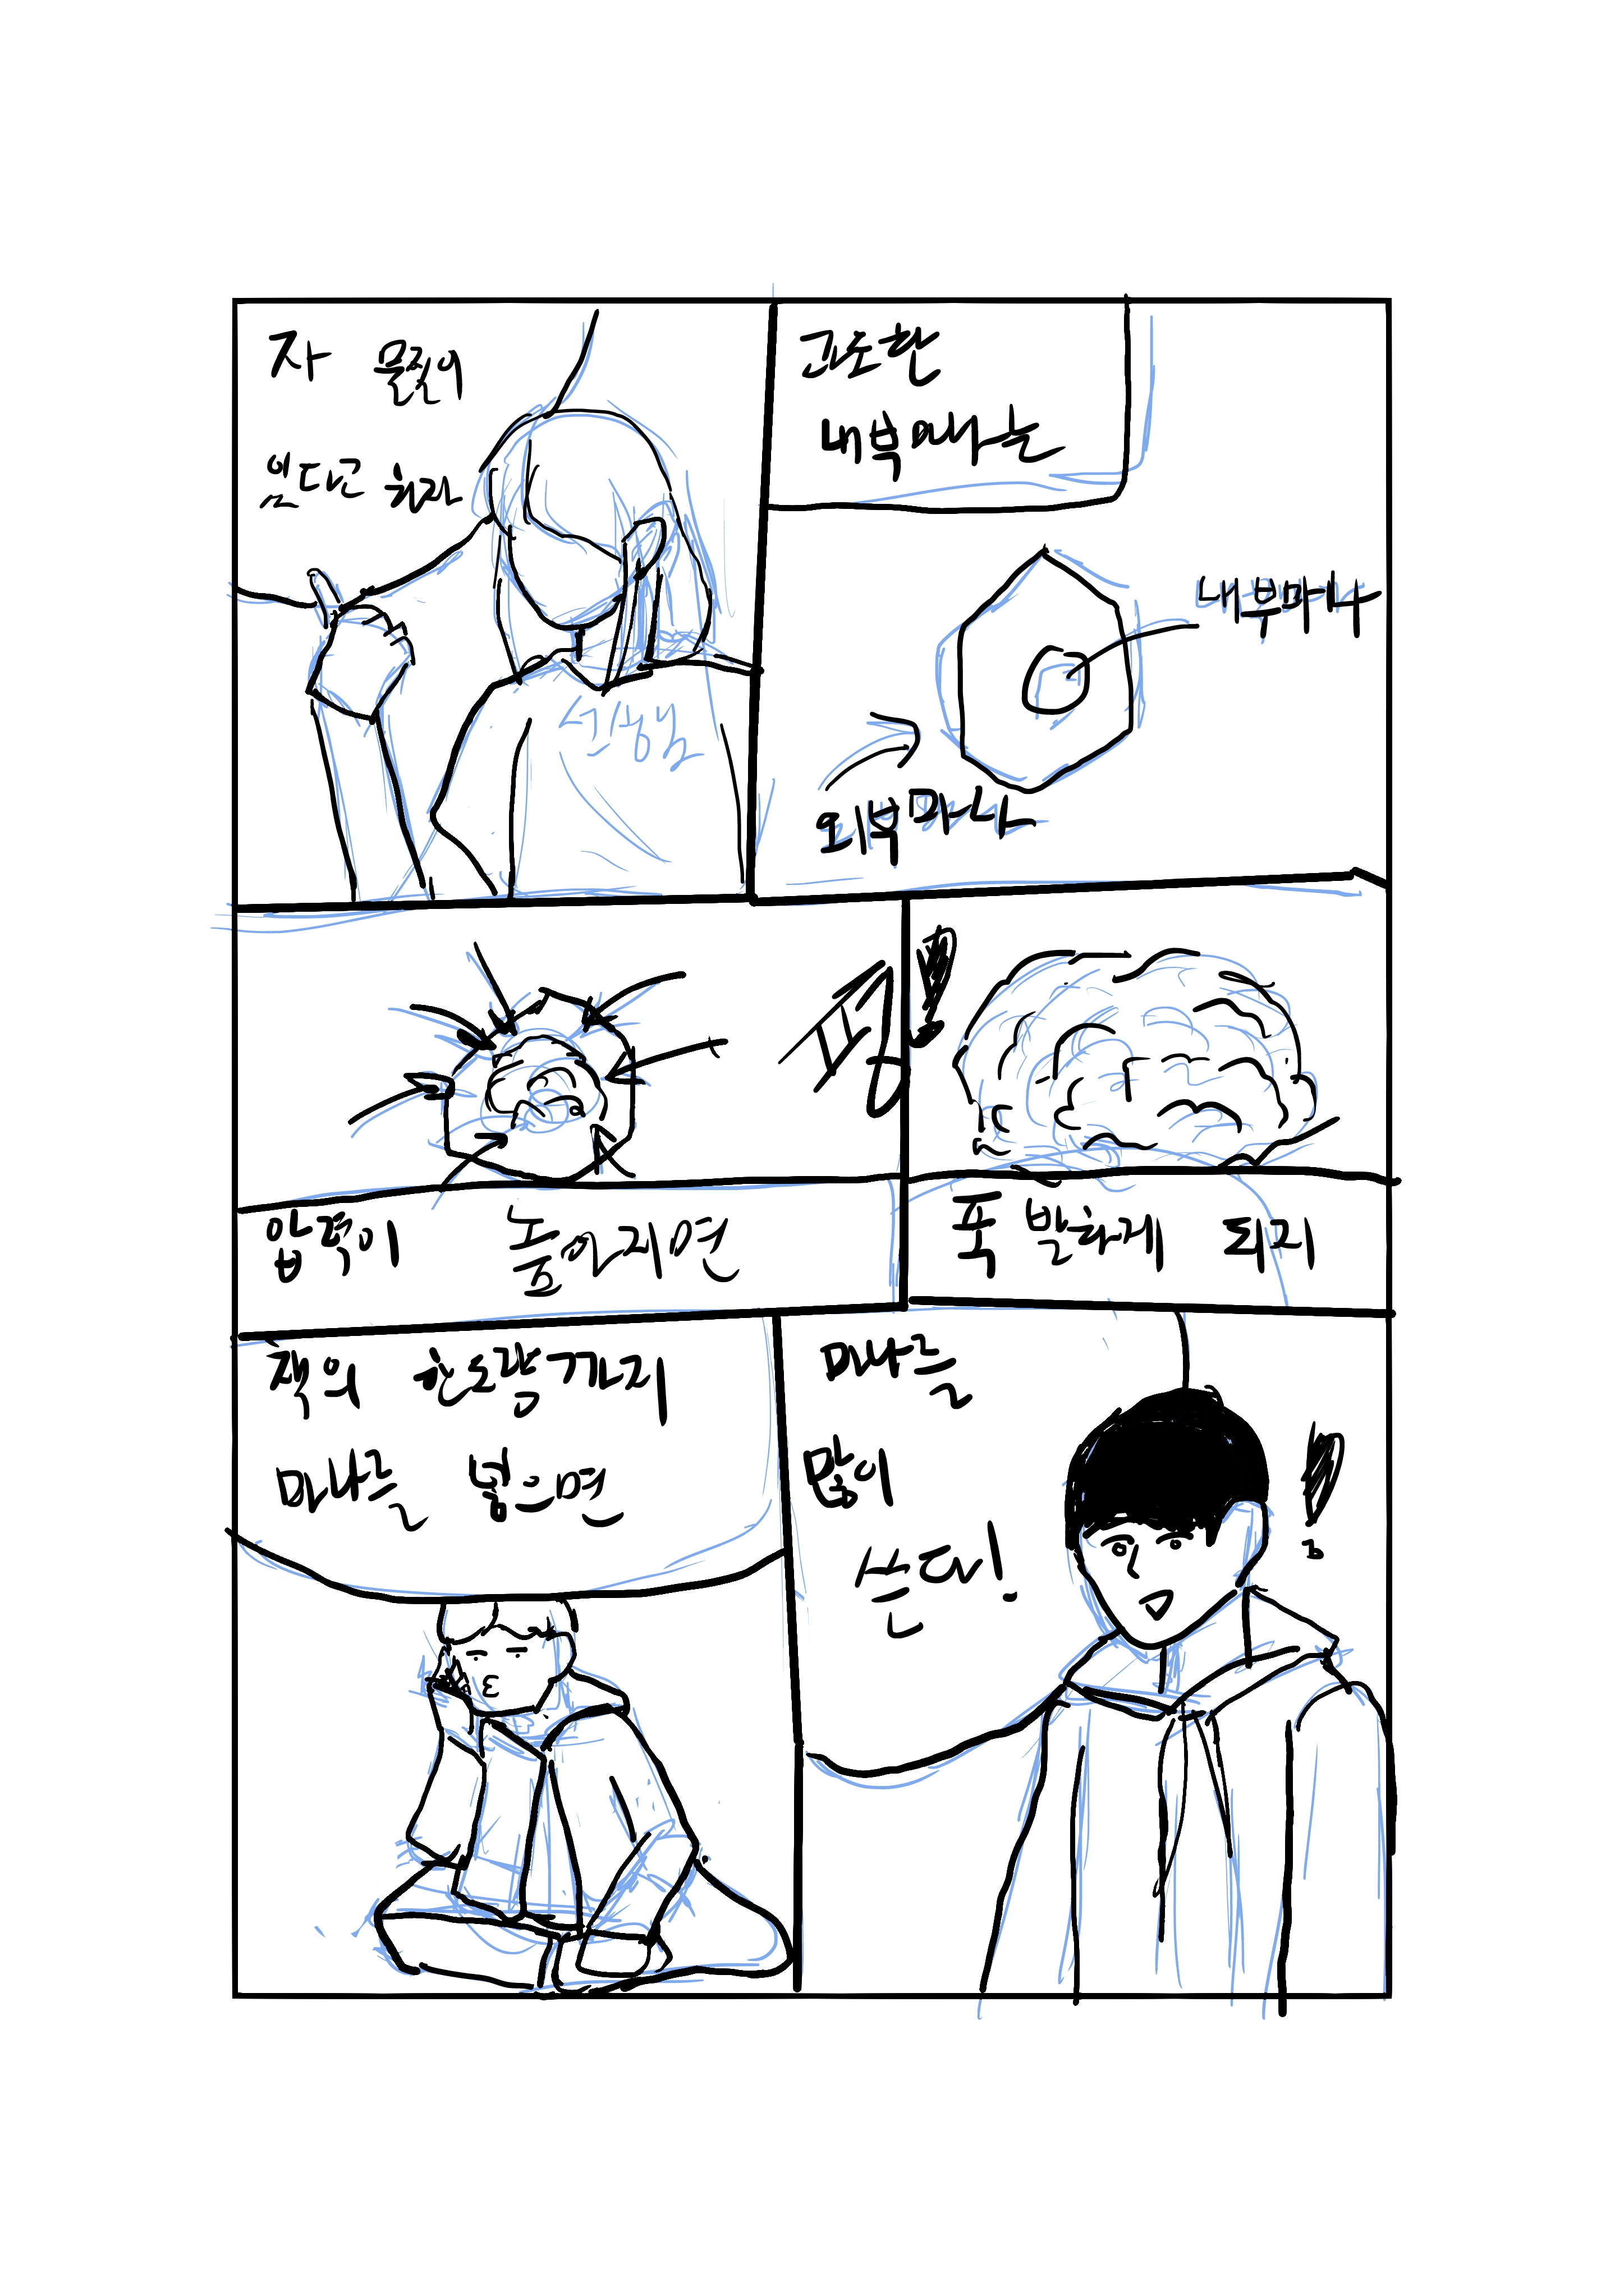 자 물질이
있다고 하자
선생님
고로한
내부마나는
내부마나
외부마나
펑!
압력이 높아지면
폭발하게 되지
책의 한도량까지
마나를 넣으면
마나를
많이
쓴다!